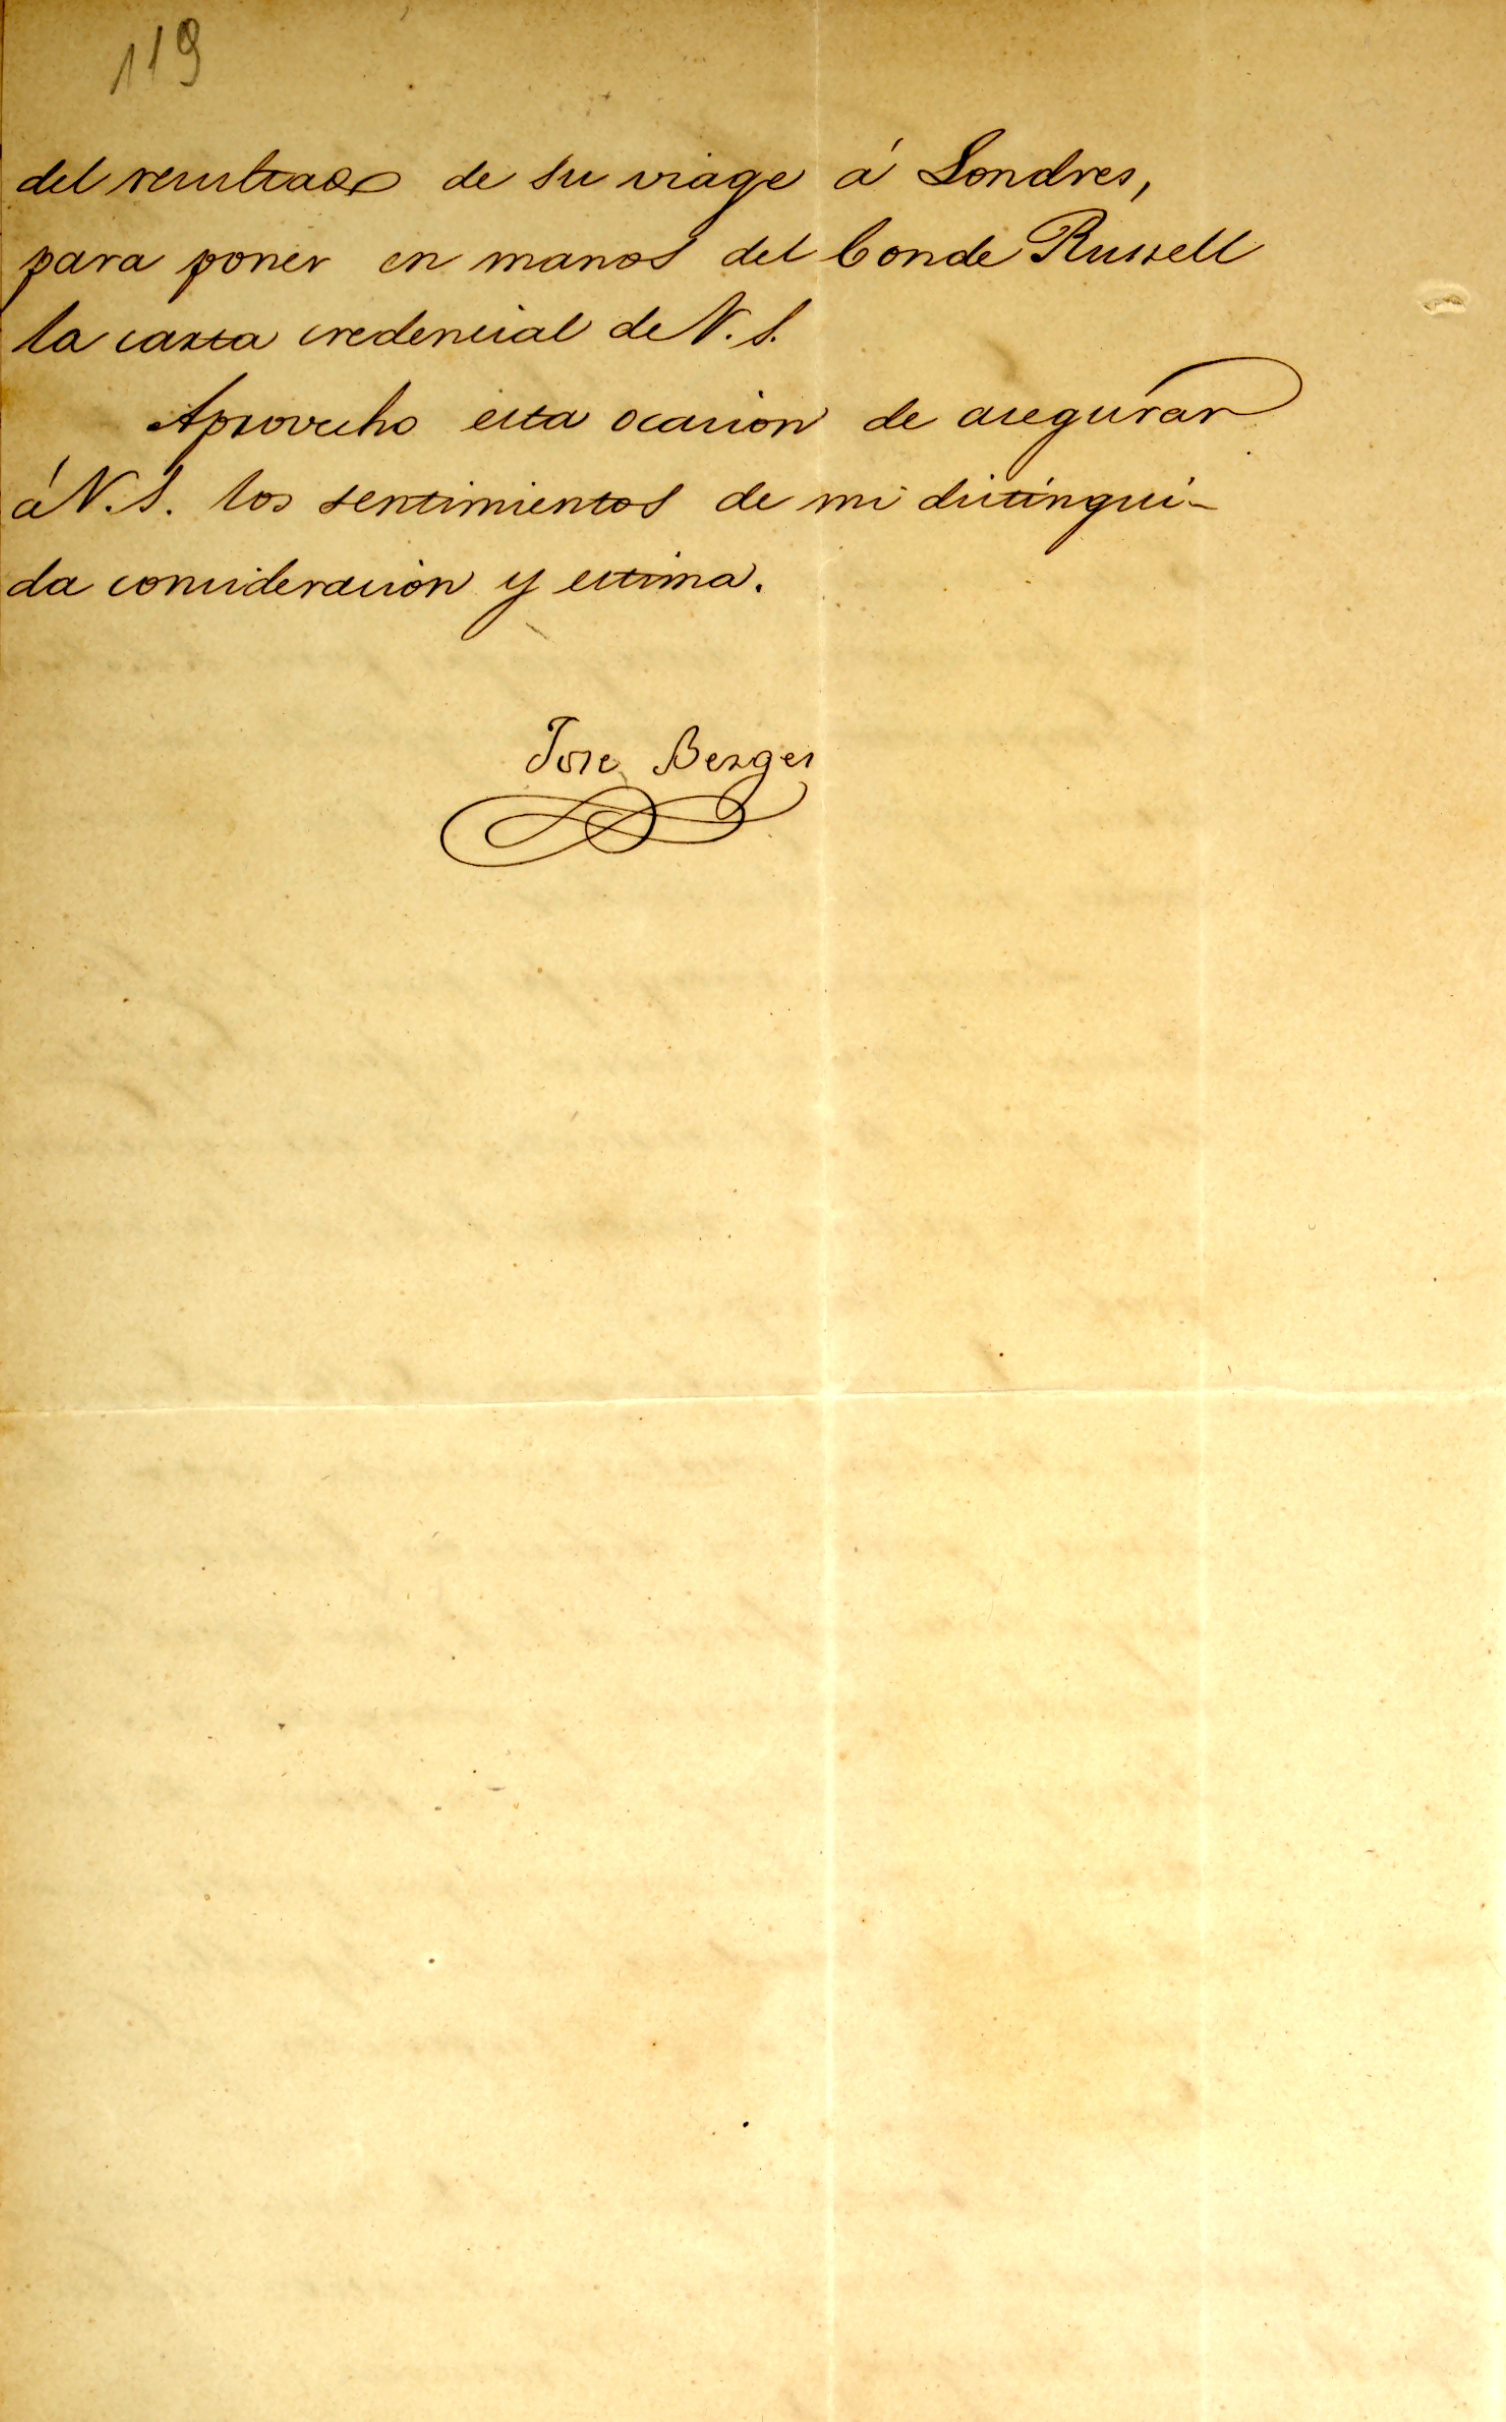 119
del resultado de su viage á Londres,
para poner en manos del Conde Russell
la carta credencial de V. S.
Aprovecho esta ocasion de asegurar
á V. S. los sentimientos de mi distingui-
da consideracion y estima.
Jose Berges